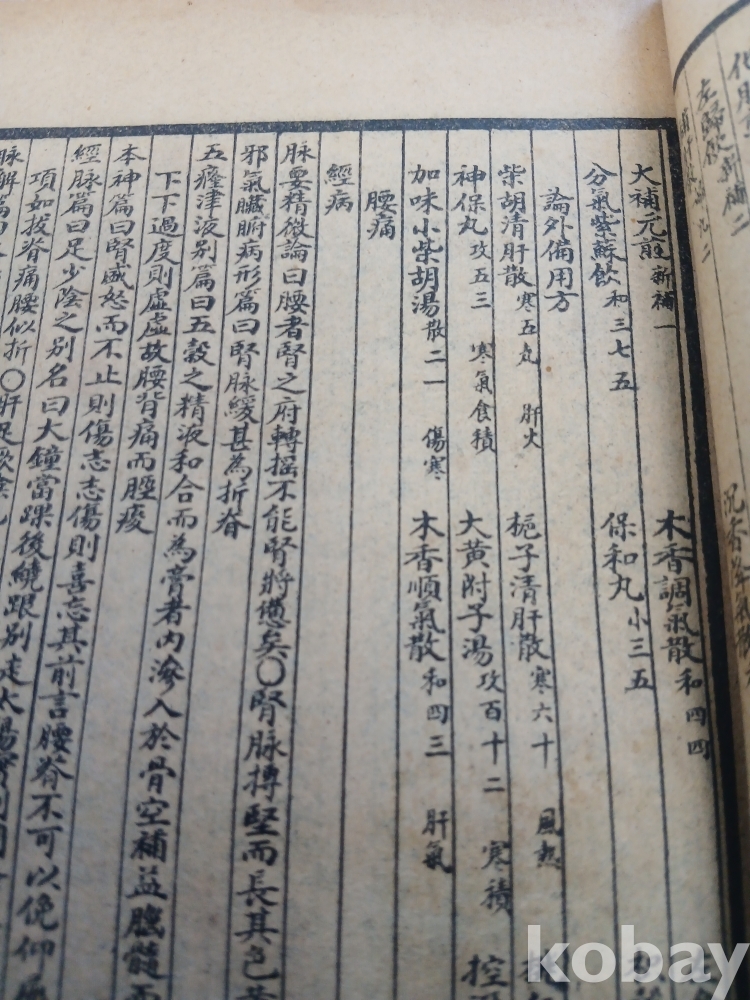 左歸飲 新補二
大補元煎 新補一 木香調氣散 和四四
分氣紫蘇飲 和三七五 保和丸 小三五
論外備用方
柴胡清肝散 寒五九 肝火 梔子清肝散 寒六十 風熱
神保丸 攻五三 寒氣食積 大黃附子湯 攻百十二 寒積
加味小柴胡湯 散二一 傷寒 木香順氣散 和四三 肝氣
腰痛
經病
脉要精微論曰腰者腎之府轉搖不能腎將憊矣〇腎脉搏堅而長其色
邪氣臟腑病形篇曰腎脉緩甚為折脊
五癃津液别篇曰五穀之精液和合而為膏者内滲入於骨空補益腦髓而
下下過度則虛虛故腰背痛而脛痠
本神篇曰腎盛怒而不止則傷志志傷則喜忘其前言腰脊不可以俛仰
經脉篇曰足少陰之别名曰大鐘當踝後繞跟别走太陽實則閉
項如拔脊痛腰似折〇肝足厥陰
脉解篇
kobay